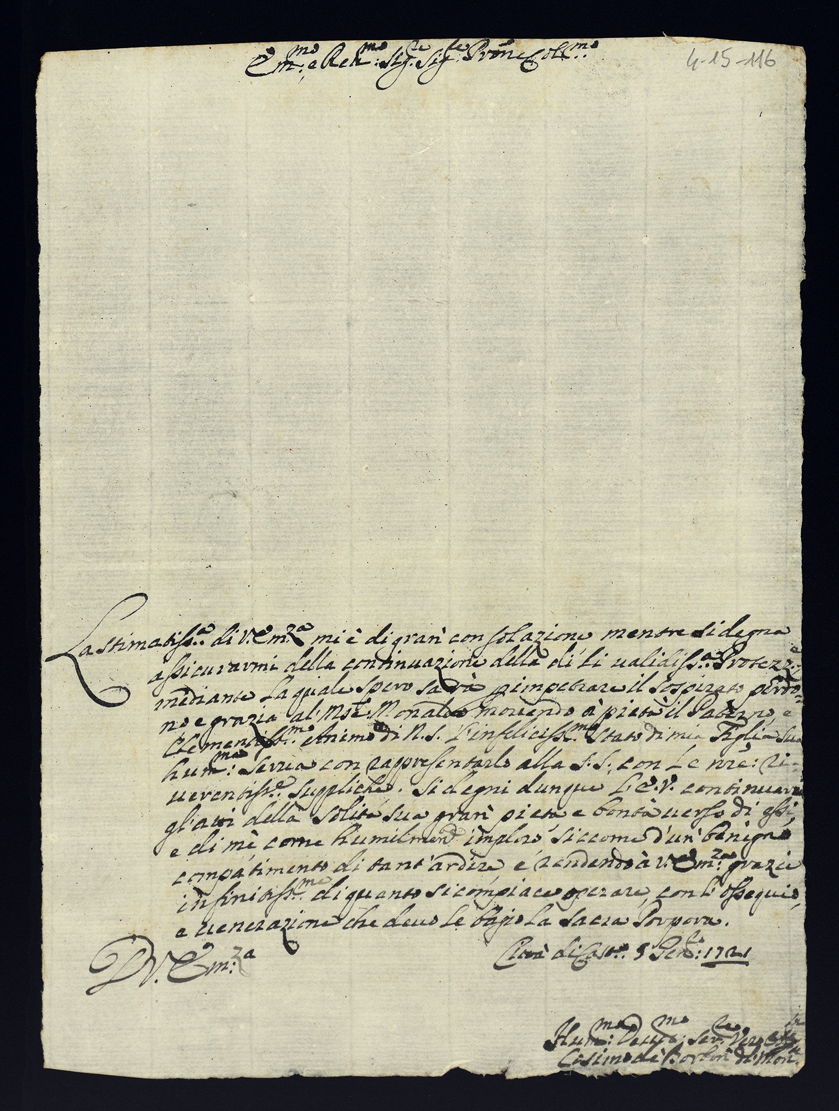 Em.mo e Rev.mo Sig.re Sig.re Pron.e Col.mo
4-15-116
La stimatiss.a di V. Em.za mi è di gran consolazione mentre si degna
assicurarmi della continuazione della di Lei validiss.a Protezz.e
mediante la quale spero sarà p impetrare il sospirato perdo=
no e grazia al M. Monaldo movendo à pietà il Paterno, e
Clementiss.mo Animo di N. S. L'infeliciss.mo Stato di mia Figlia sua
hum.ma Serva con rappresentarlo alla S. S. con Le nre: ri=
verentiss.e suppliche. Si degni dunque L'E. V. continuare
gl'atti della solita sua gran pietà e bontà verso di essi,
e di mè come humilmente imploro, siccome d'un benigno
compatimento di tant'ardire, e rendendo à V. Em.za grazie
infinitiss.me di quanto si compiace operare, con l'ossequio,
e venerazione che devo Le bagio La Sacra Porpora.
D V. Em.za
Città di Cast.o 5 Gen.o 1721
Hum.mo Dev.mo Ser.re Vero
Cosimo de Borbon di Mon.te